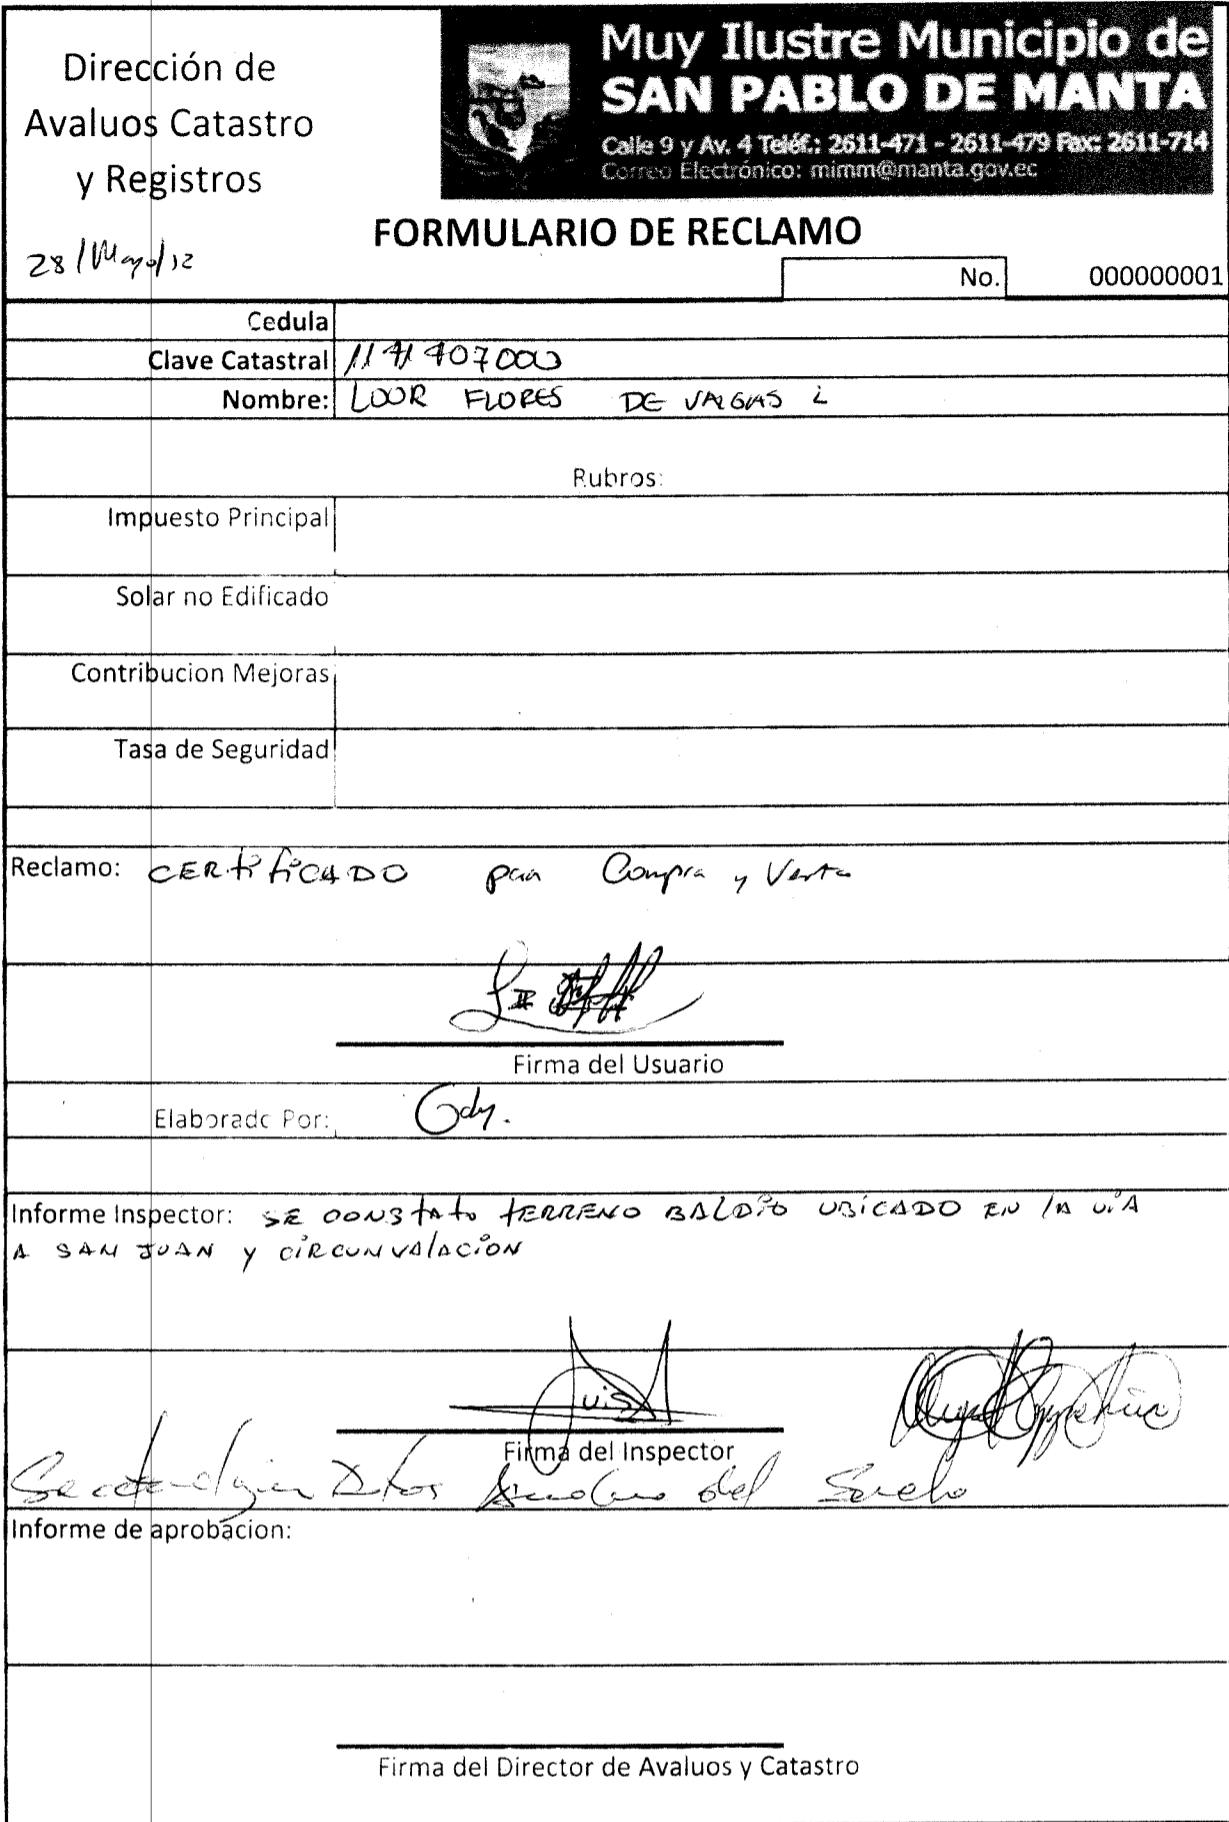 Dirección de
Avaluos Catastro
y Registros
Muy Ilustre Municipio de
SAN PABLO DE MANTA
Calle 9 y Av. 4 Teléf.: 2611-471 - 2611-479 Fax: 2611-714
Correo Electrónico: mimm@manta.gov.ec
FORMULARIO DE RECLAMO
28/Mayo/12
No. 000000001
Cedula
Clave Catastral 1171407000
Nombre: LOOR FLORES DE VARGAS L
Rubros:
Impuesto Principal
Solar no Edificado
Contribucion Mejoras
Tasa de Seguridad
Reclamo: CERtifiCADO para Compra y Venta
Firma del Usuario
Elaborado Por:
Informe Inspector: SE CONSTATO TERRENO BALDIO UBICADO EN LA VIA
A SAN JUAN Y CIRCUNVALACION
Firma del Inspector
Datos del Suelo
Informe de aprobacion:
Firma del Director de Avaluos y Catastro